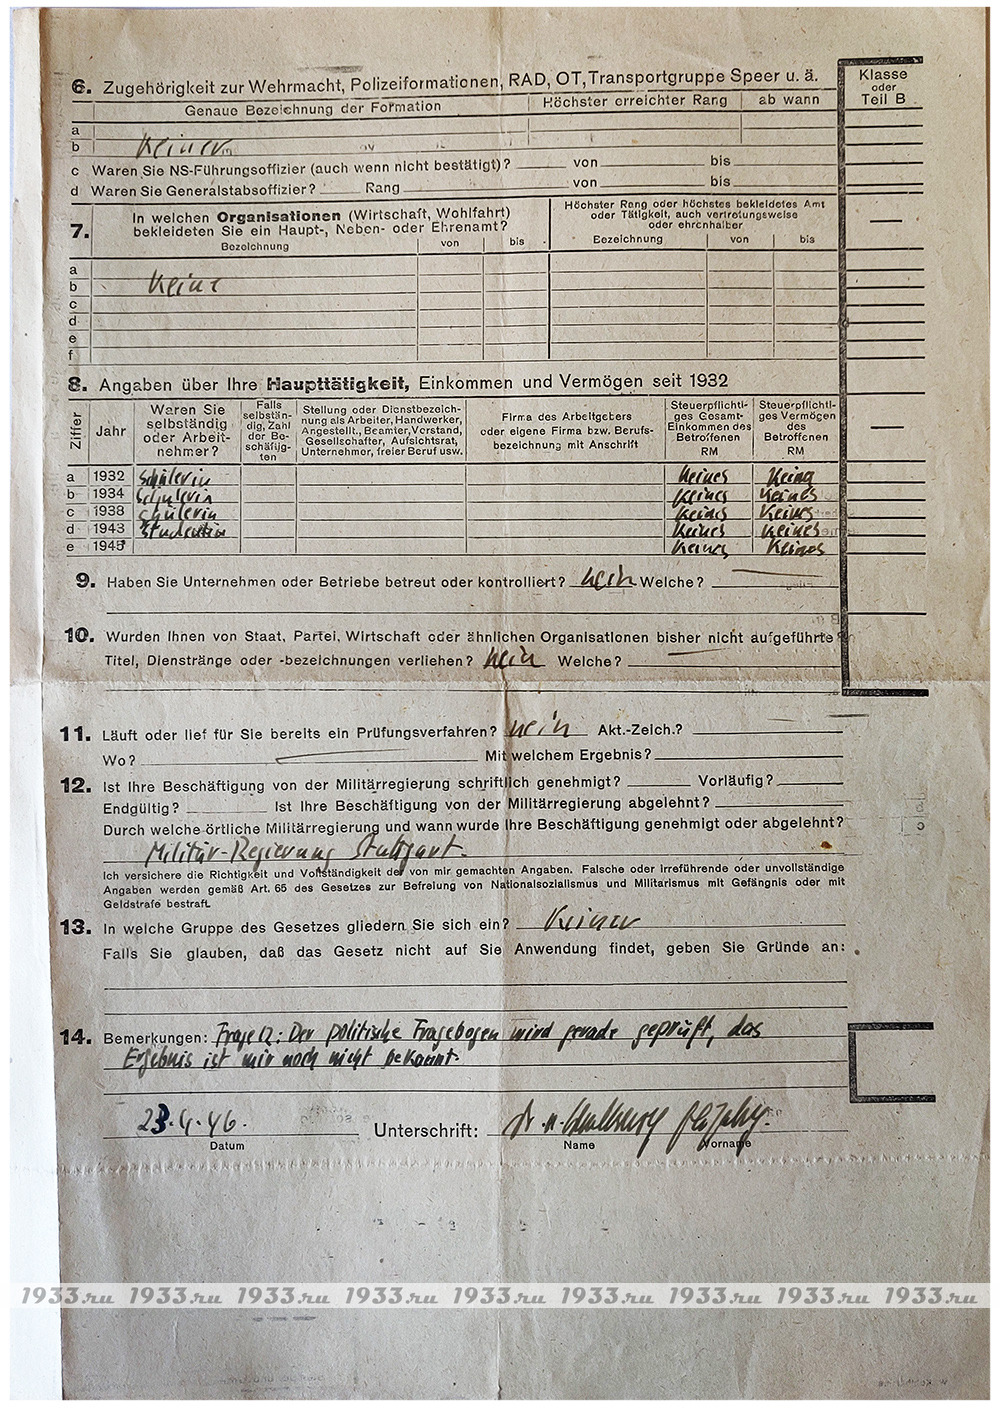 6. Zugehörigkeit zur Wehrmacht, Polizeiformationen, RAD, OT, Transportgruppe Speer u. ä.
Klasse oder Teil B
Genaue Bezeichnung der Formation Höchster erreichter Rang ab wann
a
b Keiner
c Waren Sie NS-Führungsoffizier (auch wenn nicht bestätigt)? von bis
d Waren Sie Generalstabsoffizier? Rang von bis
7. In welchen Organisationen (Wirtschaft, Wohlfahrt)
bekleideten Sie ein Haupt-, Neben- oder Ehrenamt?
Höchster Rang oder höchstes bekleidetes Amt
oder Tätigkeit, auch vertretungsweise
oder ehrenhalber
Bezeichnung von bis Bezeichnung von bis
a
b Keine
c
d
e
f
8. Angaben über Ihre Haupttätigkeit, Einkommen und Vermögen seit 1932
Ziffer
Jahr
Waren Sie selbständig oder Arbeitnehmer?
Falls selbständig, Zahl der Beschäftigten
Stellung oder Dienstbezeichnung als Arbeiter, Handwerker, Angestellt., Beamter, Vorstand, Gesellschafter, Aufsichtsrat, Unternehmer, freier Beruf usw.
Firma des Arbeitgebers oder eigene Firma bzw. Berufsbezeichnung mit Anschrift
Steuerpflichtiges Gesamt-Einkommen des Betroffenen RM
Steuerpflichtiges Vermögen des Betroffenen RM
a 1932 Schülerin Keines Keines
b 1934 Schülerin Keines Keines
c 1938 Schülerin Keines Keines
d 1943 Studentin Keines Keines
e 1945 Keines Keines
9. Haben Sie Unternehmen oder Betriebe betreut oder kontrolliert? nein Welche?
10. Wurden Ihnen von Staat, Partei, Wirtschaft oder ähnlichen Organisationen bisher nicht aufgeführte
Titel, Dienstränge oder -bezeichnungen verliehen? nein Welche?
11. Läuft oder lief für Sie bereits ein Prüfungsverfahren? nein Akt.-Zeich.?
Wo? Mit welchem Ergebnis?
12. Ist Ihre Beschäftigung von der Militärregierung schriftlich genehmigt? Vorläufig?
Endgültig? Ist Ihre Beschäftigung von der Militärregierung abgelehnt?
Durch welche örtliche Militärregierung und wann wurde Ihre Beschäftigung genehmigt oder abgelehnt?
Militär-Regierung Stuttgart.
Ich versichere die Richtigkeit und Vollständigkeit der von mir gemachten Angaben. Falsche oder irreführende oder unvollständige
Angaben werden gemäß Art. 65 des Gesetzes zur Befreiung von Nationalsozialismus und Militarismus mit Gefängnis oder mit
Geldstrafe bestraft.
13. In welche Gruppe des Gesetzes gliedern Sie sich ein? Keiner
Falls Sie glauben, daß das Gesetz nicht auf Sie Anwendung findet, geben Sie Gründe an:
14. Bemerkungen: Frage 12: Der politische Fragebogen wird gerade geprüft, das
Ergebnis ist mir noch nicht bekannt.
23.4.46. Unterschrift:
Datum Name Vorname
1933.ru 1933.ru 1933.ru 1933.ru 1933.ru 1933.ru 1933.ru 1933.ru 1933.ru